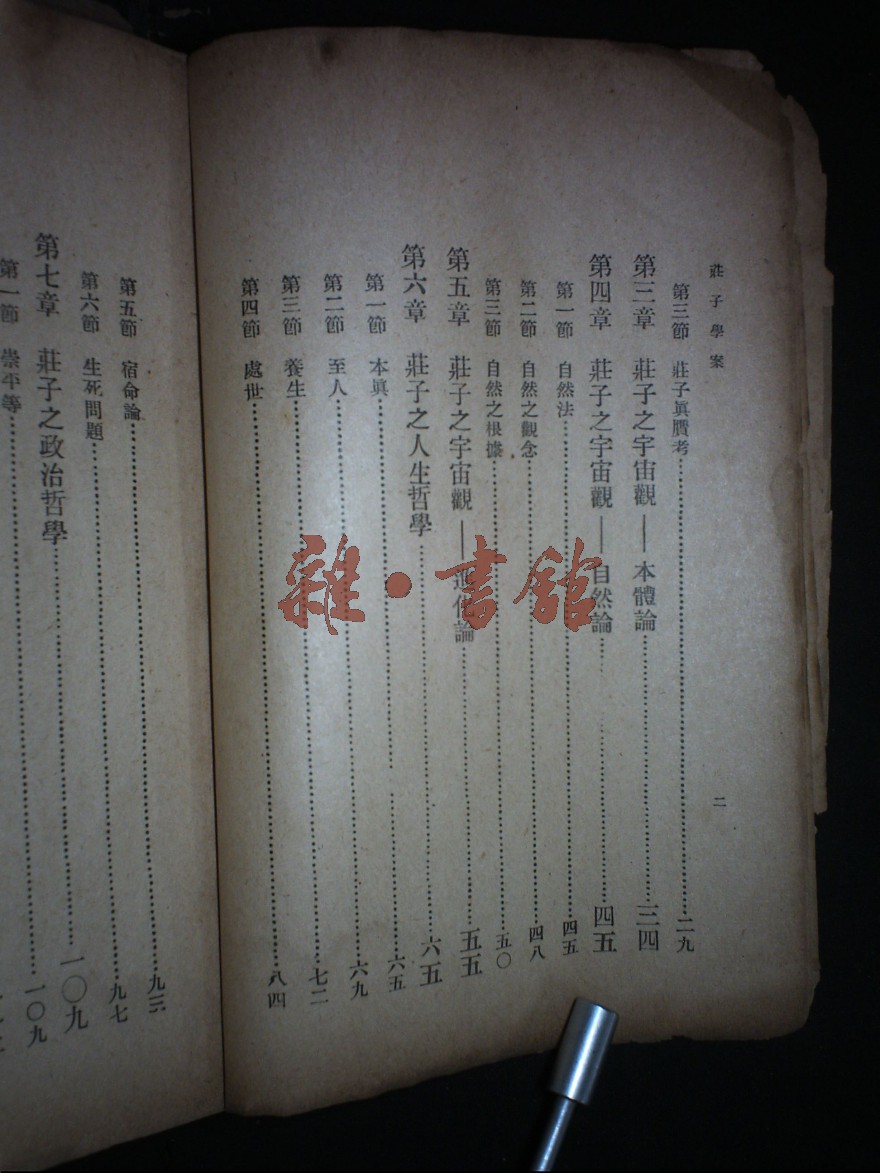 莊子學案
二
第三節 莊子眞贋考 二九
第三章 莊子之宇宙觀——本體論 三四
第四章 莊子之宇宙觀——自然論 四五
第一節 自然法 四五
第二節 自然之觀念 四八
第三節 自然之根據 五〇
第五章 莊子之宇宙觀——進化論 五五
第六章 莊子之人生哲學 六五
第一節 本眞 六五
第二節 至人 六九
第三節 養生 七二
第四節 處世 八四
第五節 宿命論 九三
第六節 生死問題 九七
第七章 莊子之政治哲學 一〇九
第一節 崇平等 一〇九
雜·書舘